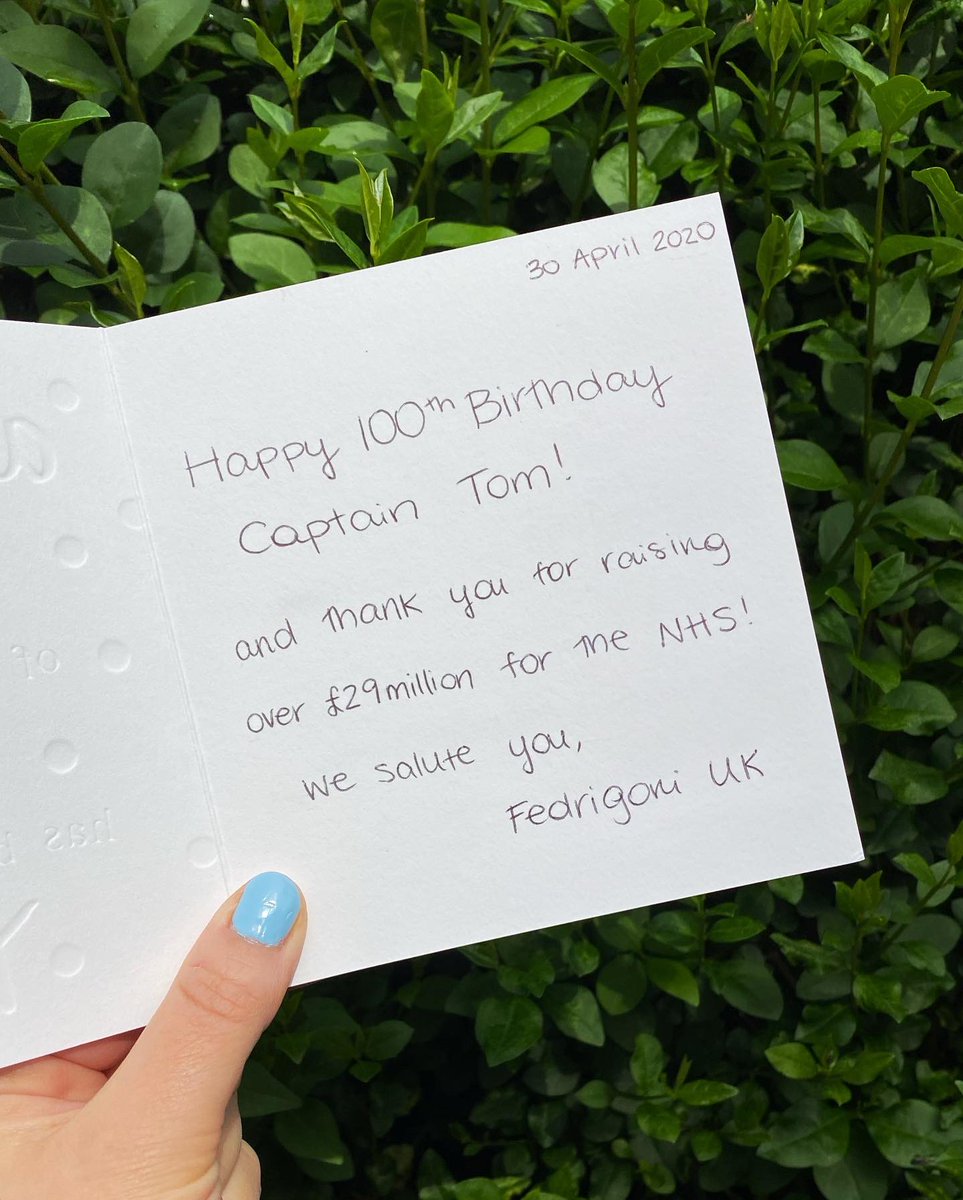 30 April 2020
Happy 100th Birthday
Captain Tom!
and thank you for raising
over £29million for the NHS!
we salute you,
Fedrigoni UK
a
of
has
y